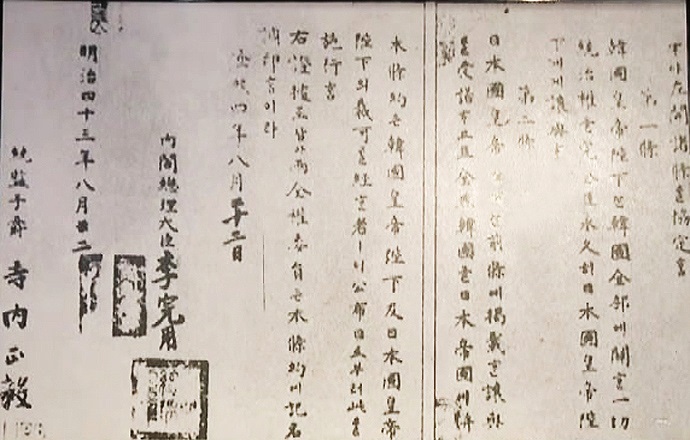 左開諸條을協定홈
第一條
韓國皇帝陛下는韓國全部에關한一切
統治權을完全且永久히日本國皇帝陛
下에게讓與홈
第二條
日本國皇帝陛下는前條에揭載한讓與
를受諾하고且全然韓國을日本帝國에併
本條約은韓國皇帝陛下及日本國皇帝
陛下의裁可를經한者ㅣ니公布日로부터此를
施行홈
右證據로삼아兩全權委員은本條約에記名
調印홈이라
隆熙四年八月二十二日
內閣總理大臣李完用
明治四十三年八月廿二
統監子爵寺內正毅